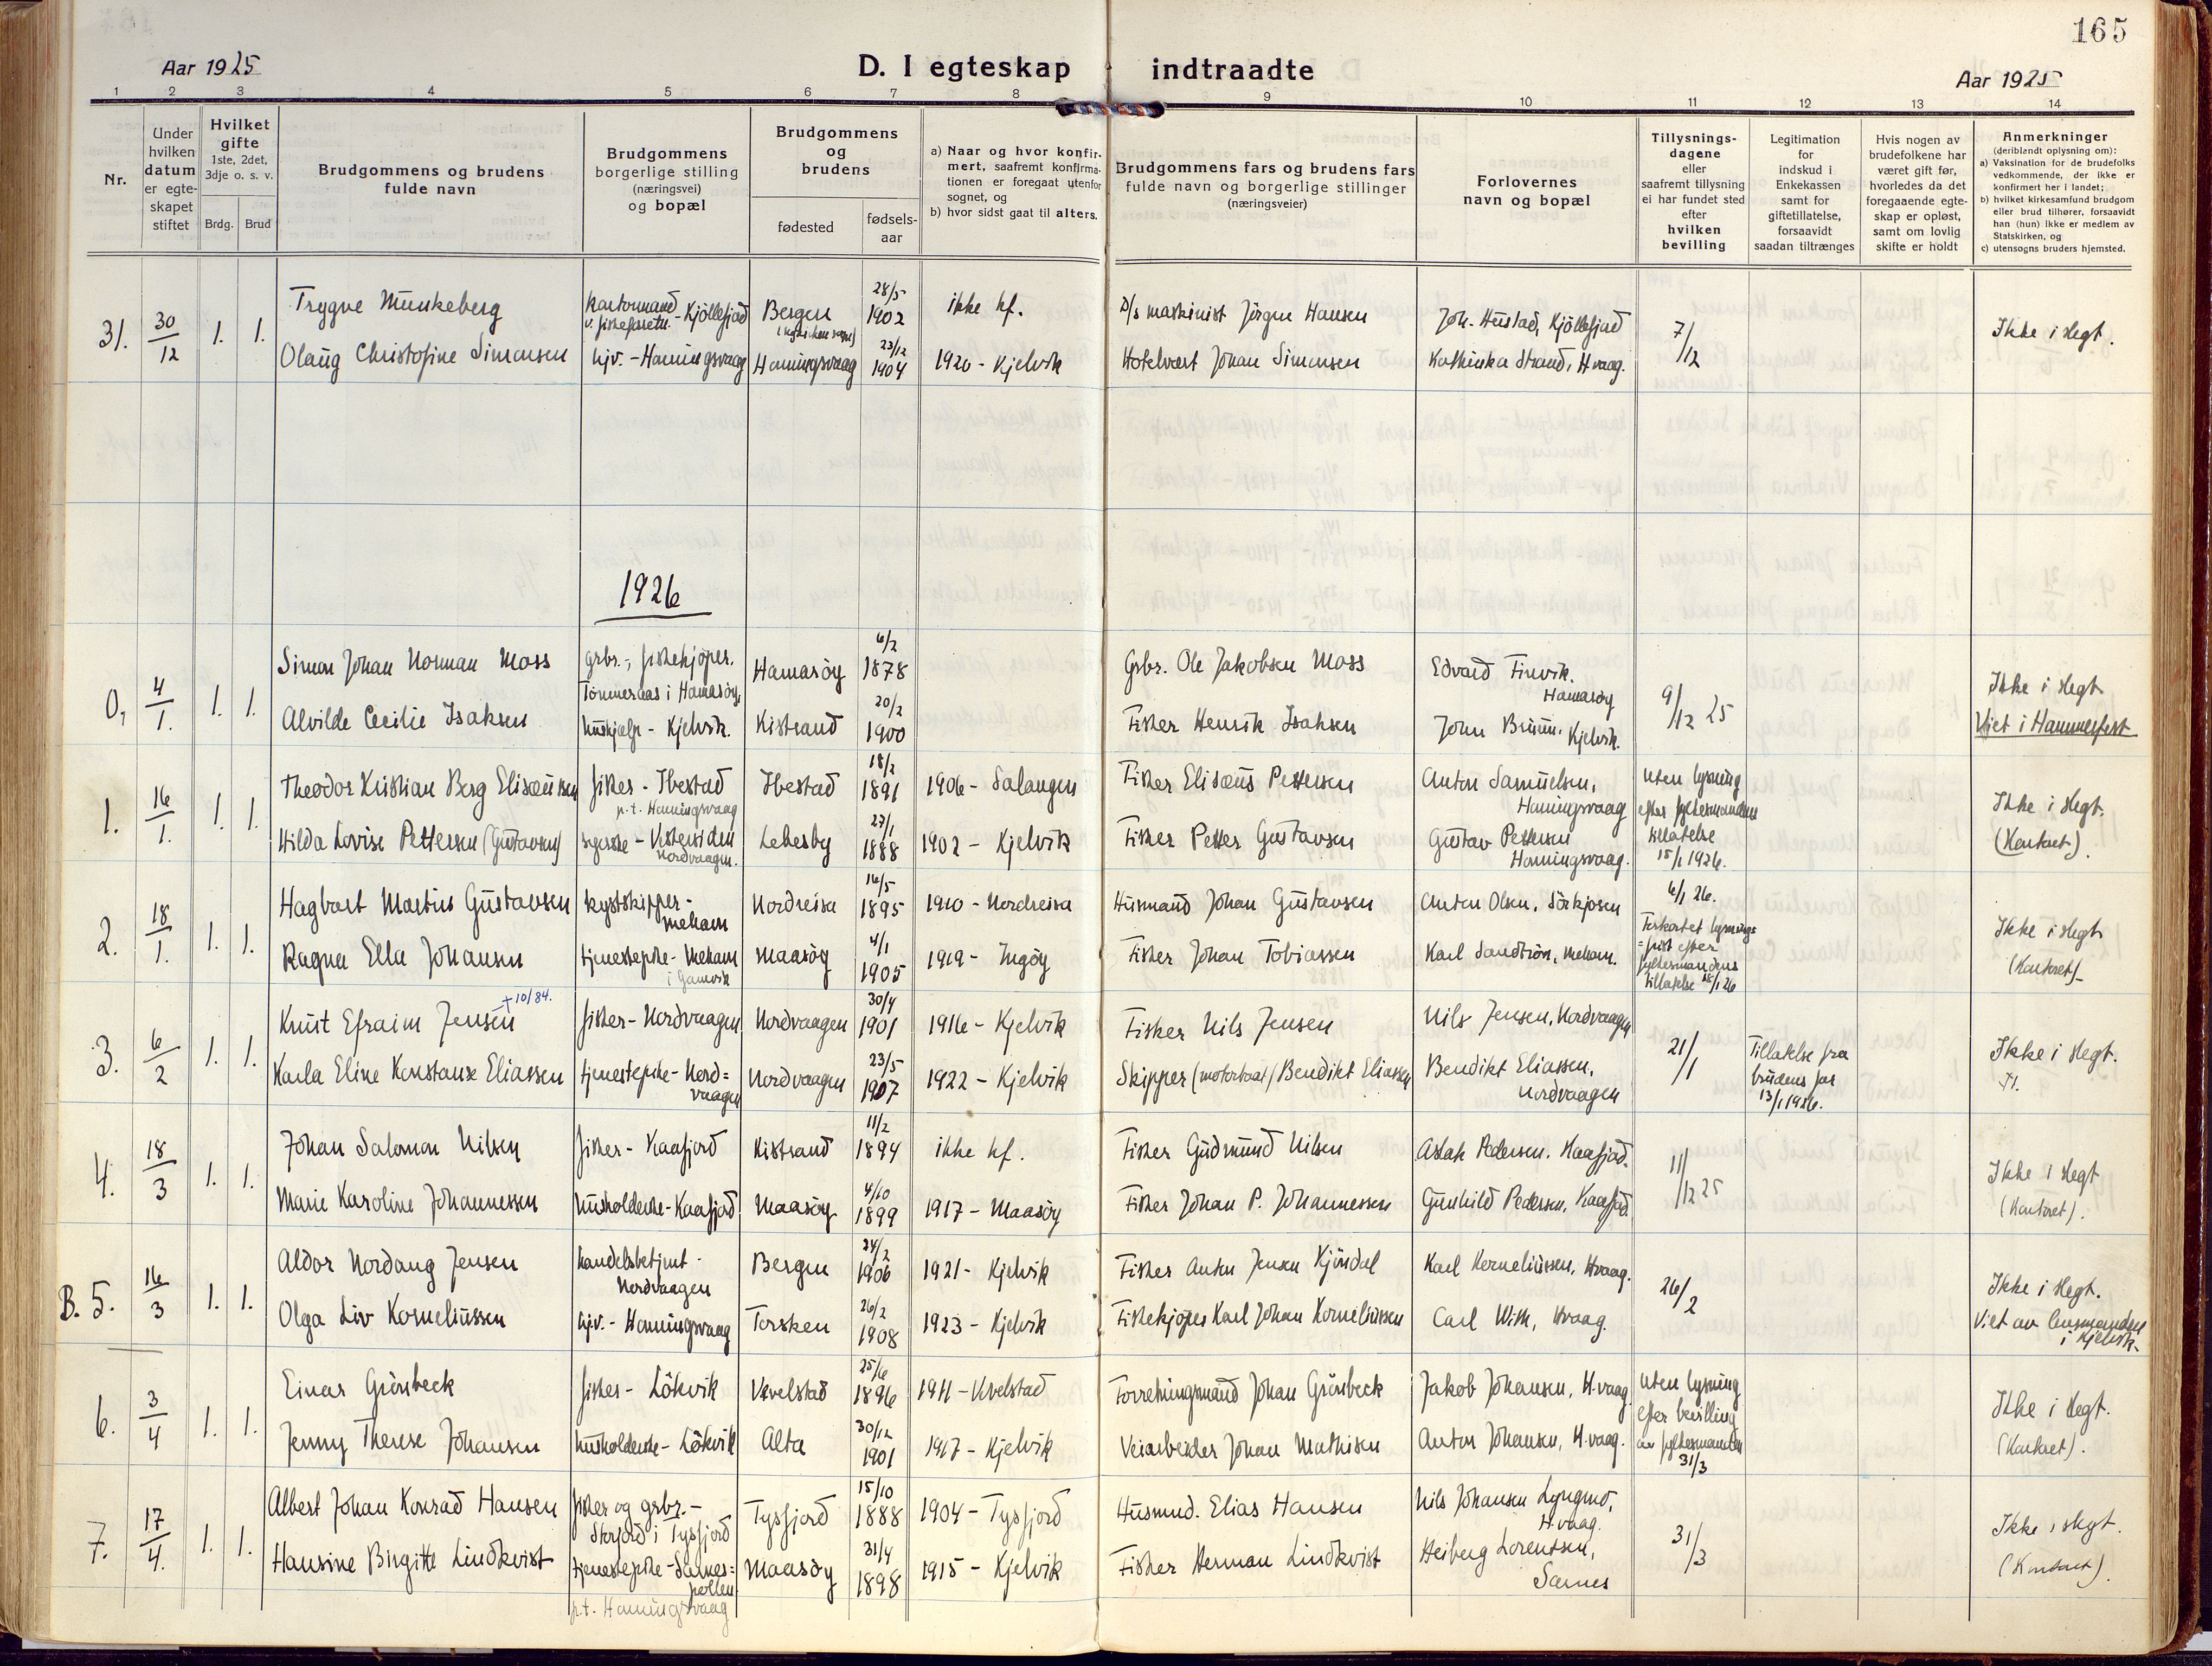 165
Aar 1925
D. I egteskap indtraadte
Aar 1925
1 2 3 4 5 6 7 8 9 10 11 12 13 14
Nr.
Under hvilken datum er egteskapet stiftet
Hvilket gifte
1ste, 2det, 3dje o. s. v.
Brdg. Brud
Brudgommens og brudens fulde navn
Brudgommens borgerlige stilling (næringsvei) og bopæl
Brudgommens og brudens
fødested
fødsels-aar
a) Naar og hvor konfirmert, saafremt konfirmationen er foregaat utenfor sognet, og
b) hvor sidst gaat til alters.
Brudgommens fars og brudens fars fulde navn og borgerlige stillinger (næringsveier)
Forlovernes navn og bopæl
Tillysningsdagene eller saafremt tillysning ei har fundet sted efter hvilken bevilling
Legitimation for indskud i Enkekassen samt for giftetillatelse, forsaavidt saadan tiltrænges
Hvis nogen av brudefolkene har været gift før, hvorledes da det foregaaende egteskap er opløst, samt om lovlig skifte er holdt
Anmerkninger (deriblandt oplysning om):
a) Vaksination for de brudefolks vedkommende, der ikke er konfirmert her i landet;
b) hvilket kirkesamfund brudgom eller brud tilhører, forsaavidt han (hun) ikke er medlem av Statskirken, og
c) utensogns bruders hjemsted.
31. 30/12 1. 1.
Trygve Munkeberg Kjøllefjord Bergen 28/5 1902 ikke kf. D/s maskinist Jörgen Hansen Joh. Hustad, Kjöllefjord 7/12 Ikke i slegt.
Olaug Christofine Simonsen hjv. - Honningsvaag Honningsvaag 23/12 1904 1920 - Kjelvik Hotelvært Johan Simonsen Kathinka Strand, H.vaag.
1926
0, 4/1. 1. 1.
Simon Johan Norman Moss grbr., fiskekjöper. Tömmeraas i Hamaröy, Hamaröy 6/2 1878 Grbr. Ole Jakobsen Moss Edvard Finvik. Hamaröy 9/12 25 Ikke i slegt
Alvilde Cecilie Isaksen hushjelp - Kjelvik. Kistrand 20/2 1900 Fisker Henrik Isaksen John Bruun, Kjelvik. Viet i Hammerfest
1. 16/1. 1. 1.
Theodor Kristian Berg Elisæussen fisker - Ibestad p.t. Honningsvaag Ibestad 18/2 1891 1906 - Salangen Fisker Elisæus Pettersen Anton Samuelsen, Honningsvaag uten lysning efter fylkesmandens tillatelse 15/1 1926. Ikke i slegt. (Kontoret).
Hilda Lovise Pettersen (Gustavsen) Vestersiden Nordvaagen. Lebesby 23/1 1888 1902 - Kjelvik Fisker Petter Gustavsen Gustav Pettersen Honningsvaag.
2. 18/1. 1. 1.
Hagbart Martius Gustavsen kystskipper - Mehamn Nordreisa 16/5 1895 1910 - Nordreisa Husmand Johan Gustavsen Anton Olsen, Sörkjosen 6/1 26. Forkortet lysningsfrist efter fylkesmandens tillatelse 18/1 26 Ikke i slegt (Kontoret)
Ragna Ella Johansen tjenestepike - Mehamn i Gamvik Maasöy 4/1 1905 1919 - Ingöy Fisker Johan Tobiassen Karl Sandtrön, Mehamn.
3. 6/2 1. 1.
Knut Efraim Jensen +10/84. fisker - Nordvaagen Nordvaagen 30/4 1901 1916 - Kjelvik Fisker Nils Jensen Nils Jensen, Nordvaagen 21/1 Tillatelse fra brudens far 13/1 1926. Ikke i slegt.
Karla Eline Konstanse Eliassen tjenestepike - Nord=vaagen Nordvaagen 23/5 1907 1922 - Kjelvik Skipper (motorbaat) Bendikt Eliassen Bendikt Eliassen, Nordvaagen
4. 18/3 1. 1.
Johan Salomon Nilsen fisker - Kaafjord Kistrand 11/2 1894 ikke kf. Fisker Gudmund Nilsen Aslak Pedersen. Kaafjord. 11/12 25 Ikke i slegt (Kontoret).
Marie Karoline Johannessen husholderske - Kaafjord Maasöy 4/10 1899 1917 - Maasöy Fisker Johan P. Johannessen Gunhild Pedersen, Kaafjord
B. 5. 16/3 1. 1.
Aldor Nordang Jensen handelsbetjent - Nordvaagen Bergen 24/2 1906 1921 - Kjelvik Fisker Anton Jensen Karl Korneliussen, Hvaag. 26/2 Ikke i slegt. Viet av lensmanden i Kjelvik.
Olga Liv Korneliussen hjv. - Honningsvaag Torsken 26/2 1908 1923 - Kjelvik Fiskekjöper Karl Johan Korneliussen Carl With, Hvaag.
6. 3/4 1. 1.
Einar Grönbeck fisker - Lökvik Vevelstad 25/6 1896 1911 - Vevelstad Forretningsmand Johan Grönbeck Jakob Johansen, H.vaag. uten lysning efter bevilling av fylkesmanden 31/3 Ikke i slegt. (Kontoret).
Jenny Therese Johansen husholderske - Lökvik Alta 30/12 1901 1917 - Kjelvik Veiarbeider Johan Mathisen Anton Johansen, H.vaag.
7. 17/4. 1. 1.
Albert Johan Konrad Hansen fisker og grbr. - i Tysfjord Tysfjord 15/10 1888 1904 - Tysfjord Husmd. Elias Hansen Nils Johansen Lyngmo, H.vaag. 31/3 Ikke i slegt. (Kontoret).
Hansine Birgitte Lindkvist tjenestepike - Sarnes=pollen p.t. Honningsvaag Maasöy 31/4 1898 1915 - Kjelvik Fisker Herman Lindkvist Heiberg Lorentsen, Sarnes